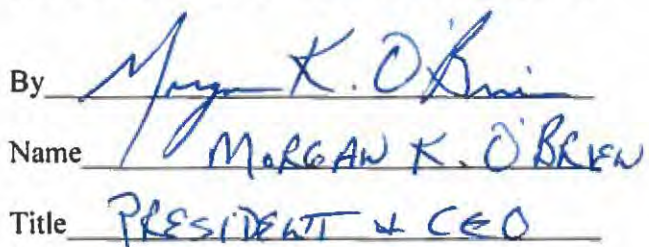 By Morgan K. O'Brien
Name MORGAN K. O'BRIEN
Title PRESIDENT & CEO